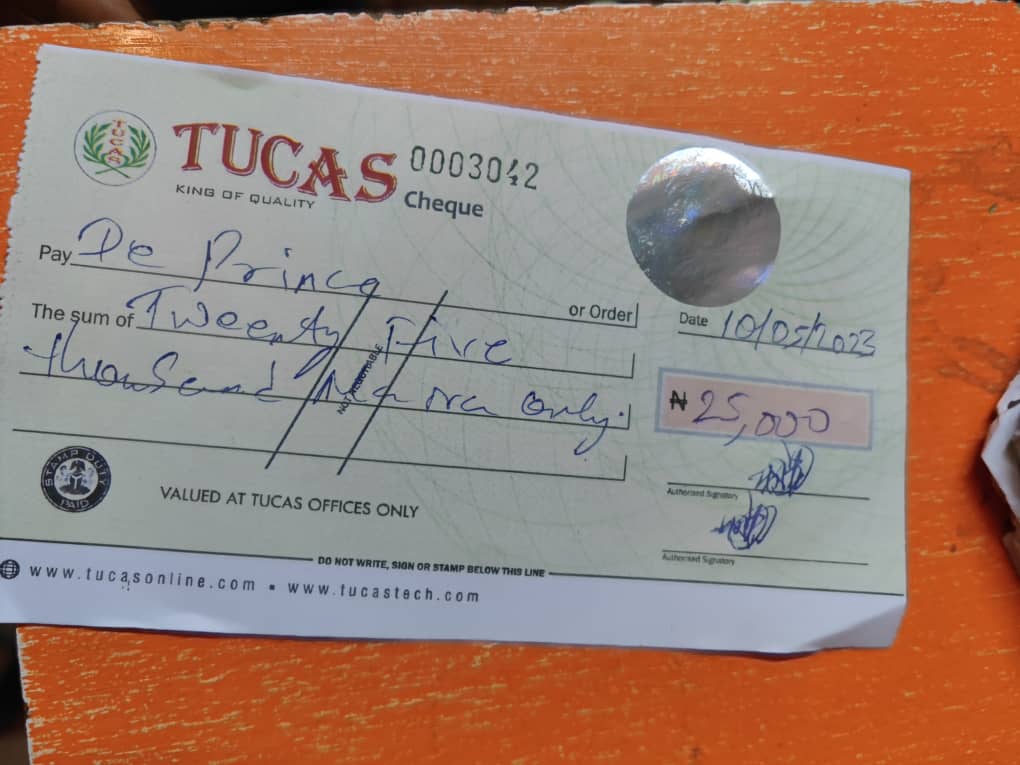 TUCAS
TUCAS 0003042
KING OF QUALITY
Cheque
Pay De Prince or Order
Date 10/05/2023
The sum of Tweenty Five
thousand Naira only.
NOT NEGOTIABLE
₦ 25,000
Authorised Signatory
Authorised Signatory
STAMP DUTY
PAID
VALUED AT TUCAS OFFICES ONLY
DO NOT WRITE, SIGN OR STAMP BELOW THIS LINE
www.tucasonline.com ▪ www.tucastech.com